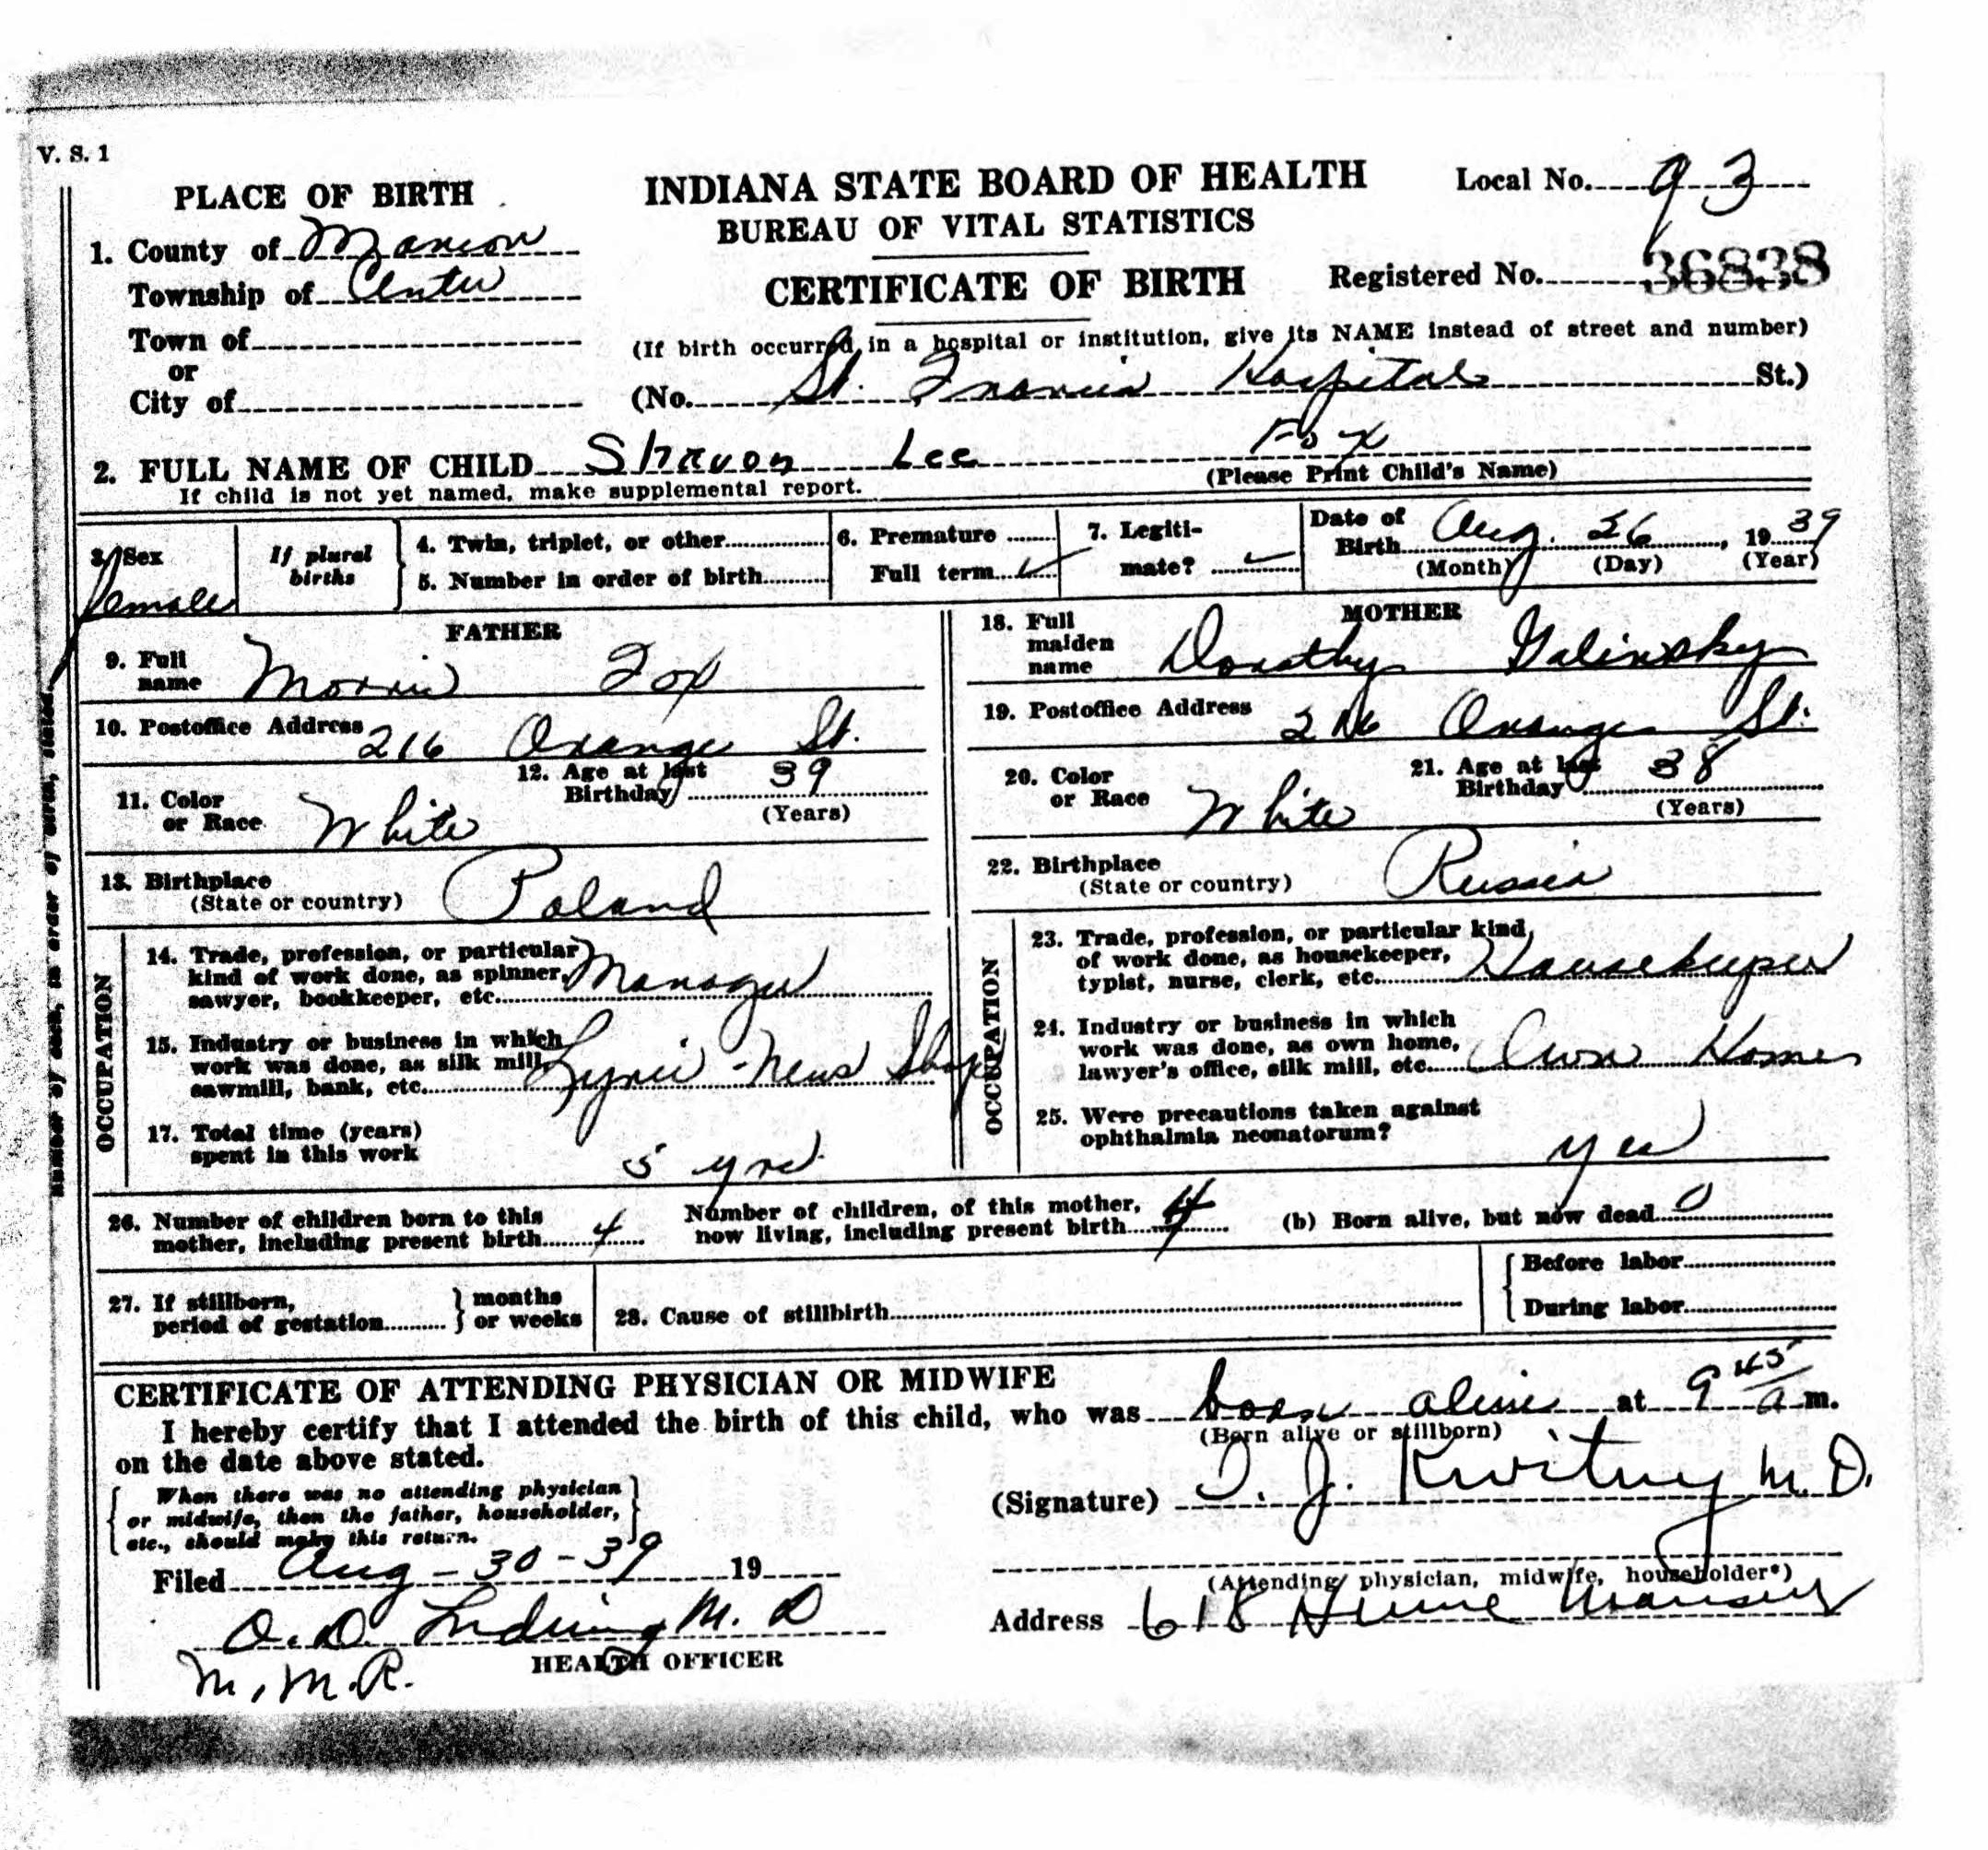 V. S. 1
PLACE OF BIRTH
INDIANA STATE BOARD OF HEALTH
Local No. 93
BUREAU OF VITAL STATISTICS
1. County of Marion
CERTIFICATE OF BIRTH
Registered No. 36838
Township of Center
Town of
(If birth occurred in a hospital or institution, give its NAME instead of street and number)
or
City of
(No. St. Francis Hospital St.)
2. FULL NAME OF CHILD Sharon Lee Fox
(Please Print Child's Name)
If child is not yet named, make supplemental report.
3. Sex female
If plural births
4. Twin, triplet, or other
5. Number in order of birth
6. Premature
Full term ✓
7. Legitimate? ✓
Date of Birth Aug. 26, 1939
(Month) (Day) (Year)
FATHER
9. Full name Morris Fox
10. Postoffice Address 216 Orange St.
11. Color or Race White
12. Age at last Birthday 39
(Years)
13. Birthplace Poland
(State or country)
OCCUPATION
14. Trade, profession, or particular
kind of work done, as spinner,
sawyer, bookkeeper, etc. Manager
15. Industry or business in which
work was done, as silk mill,
sawmill, bank, etc. Lyric - News Shop
17. Total time (years)
spent in this work 5 yrs
MOTHER
18. Full maiden name Dorothy Galinsky
19. Postoffice Address 216 Orange St.
20. Color or Race White
21. Age at last Birthday 38
(Years)
22. Birthplace Russia
(State or country)
OCCUPATION
23. Trade, profession, or particular kind
of work done, as housekeeper,
typist, nurse, clerk, etc. Housekeeper
24. Industry or business in which
work was done, as own home,
lawyer's office, silk mill, etc. Own Home
25. Were precautions taken against
ophthalmia neonatorum? yes
26. Number of children born to this
mother, including present birth 4
Number of children, of this mother,
now living, including present birth 4
(b) Born alive, but now dead 0
27. If stillborn,
period of gestation
months
or weeks
28. Cause of stillbirth
Before labor
During labor
CERTIFICATE OF ATTENDING PHYSICIAN OR MIDWIFE
I hereby certify that I attended the birth of this child, who was born alive at 9 45 a m.
(Born alive or stillborn)
on the date above stated.
When there was no attending physician
or midwife, then the father, householder,
etc., should make this return.
(Signature) J. Kwitny M.D.
(Attending physician, midwife, householder*)
Filed Aug - 30 - 39 19
Address 618 Hume Mansur
M. D
HEALTH OFFICER
M. M. R.
number of each, in order of birth, stated.